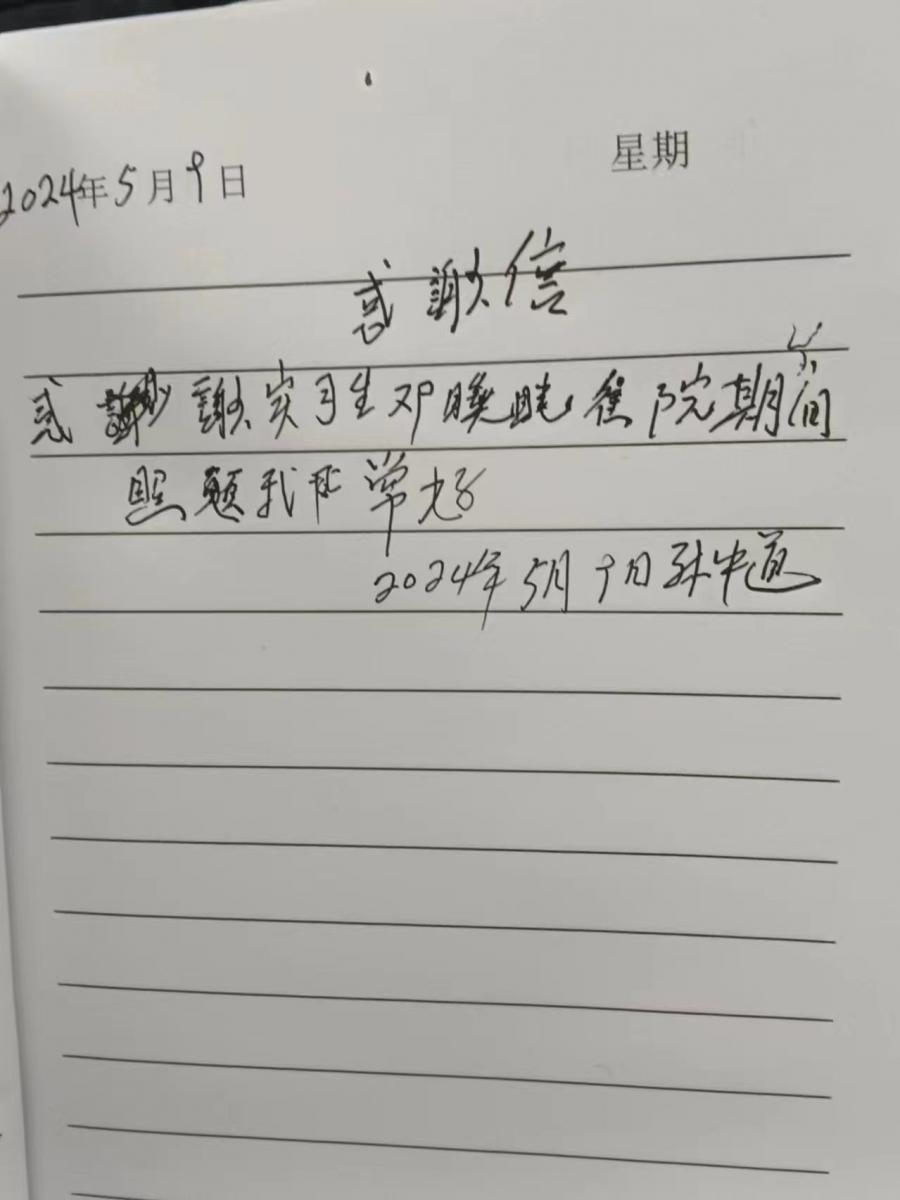 2024年5月9日 星期
感謝信
感 謝实习生邓 院期间
照顾我非常好
2024年5月9日孙中道